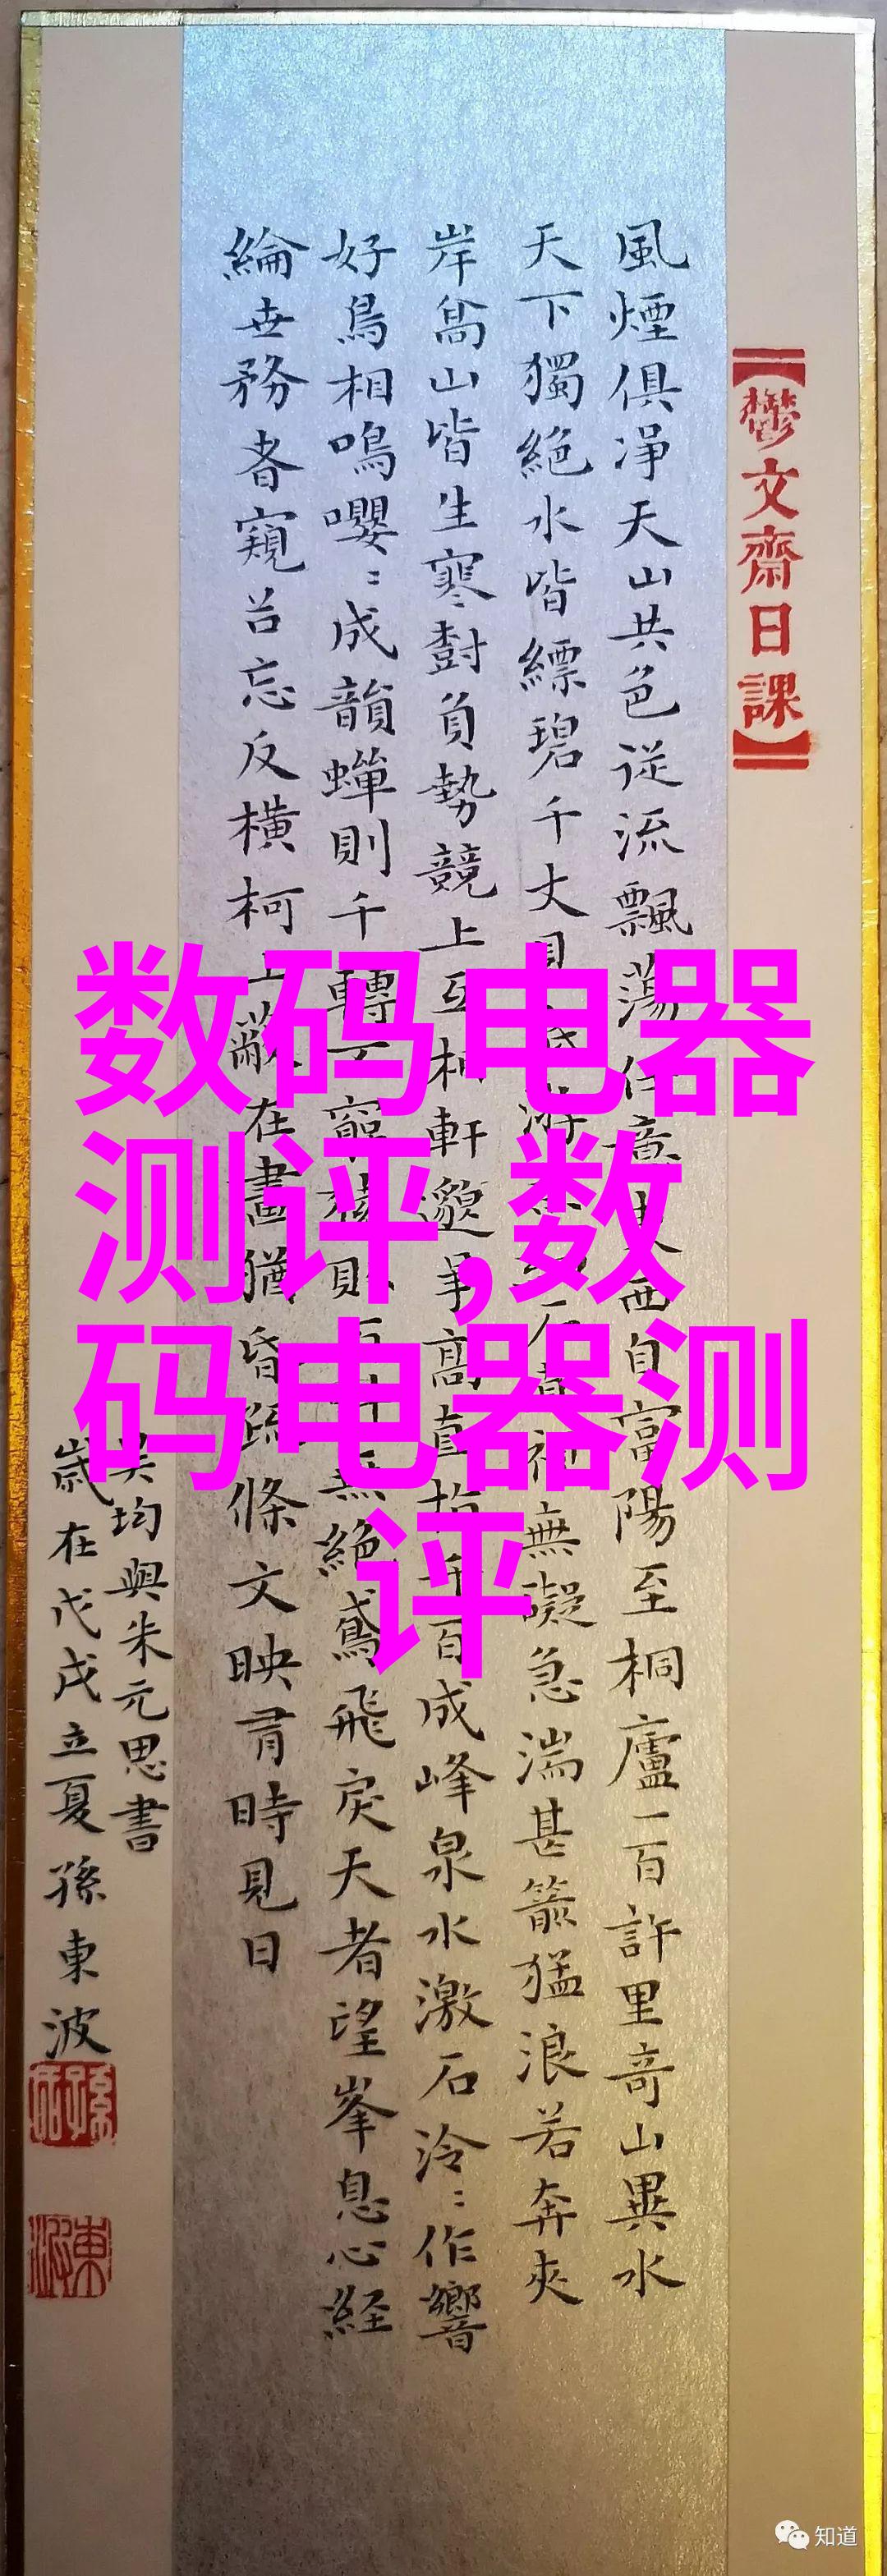 【鬱文齋日課】
風煙俱淨天山共色從流飄蕩任意東西自富陽至桐廬一百許里奇山異水
天下獨絕水皆縹碧千丈見底游石直視無礙急湍甚箭猛浪若奔夾
岸高山皆生寒樹負勢競上互相軒邈爭高直指千百成峰泉水激石泠〻作響
好鳥相鳴嚶〻成韻蟬則千轉不窮猿則百叫無絕鳶飛戾天者望峯息心経
綸世務者窺谷忘反橫柯上蔽在晝猶昏疏條交映有時見日
吳均與朱元思書
歲在戊戌立夏孫東波
数码电器
测评,数
码电器测
评
知道